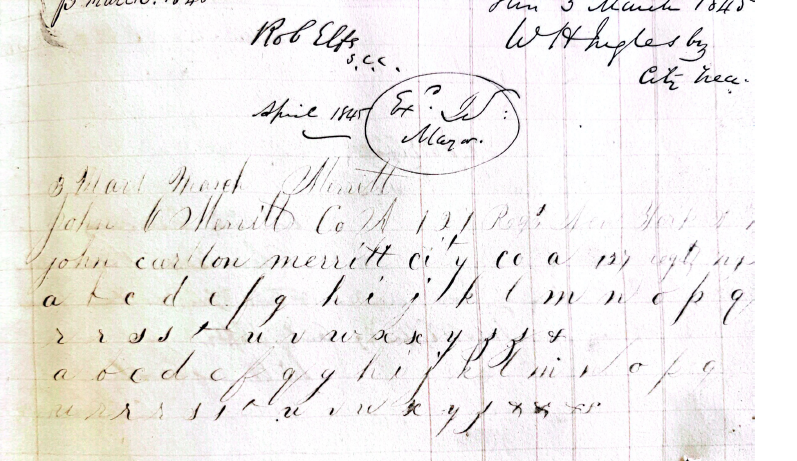 March. 184
3 March 1845
Rob Elfe
W H Inglesby
s.c.c.
City Trea.
April 1845
Exd. W:
Mayor.
3 Mart March Merritt
John C Merritt Co A 127 Regt New York
john carlton merritt city co a 127 regt ny
a b c d e f g h i j k l m n o p q
r r s s t u v w x x y z z &
a b c d e f g y h i j k l m n o p q
r r r s s t u v w x y z